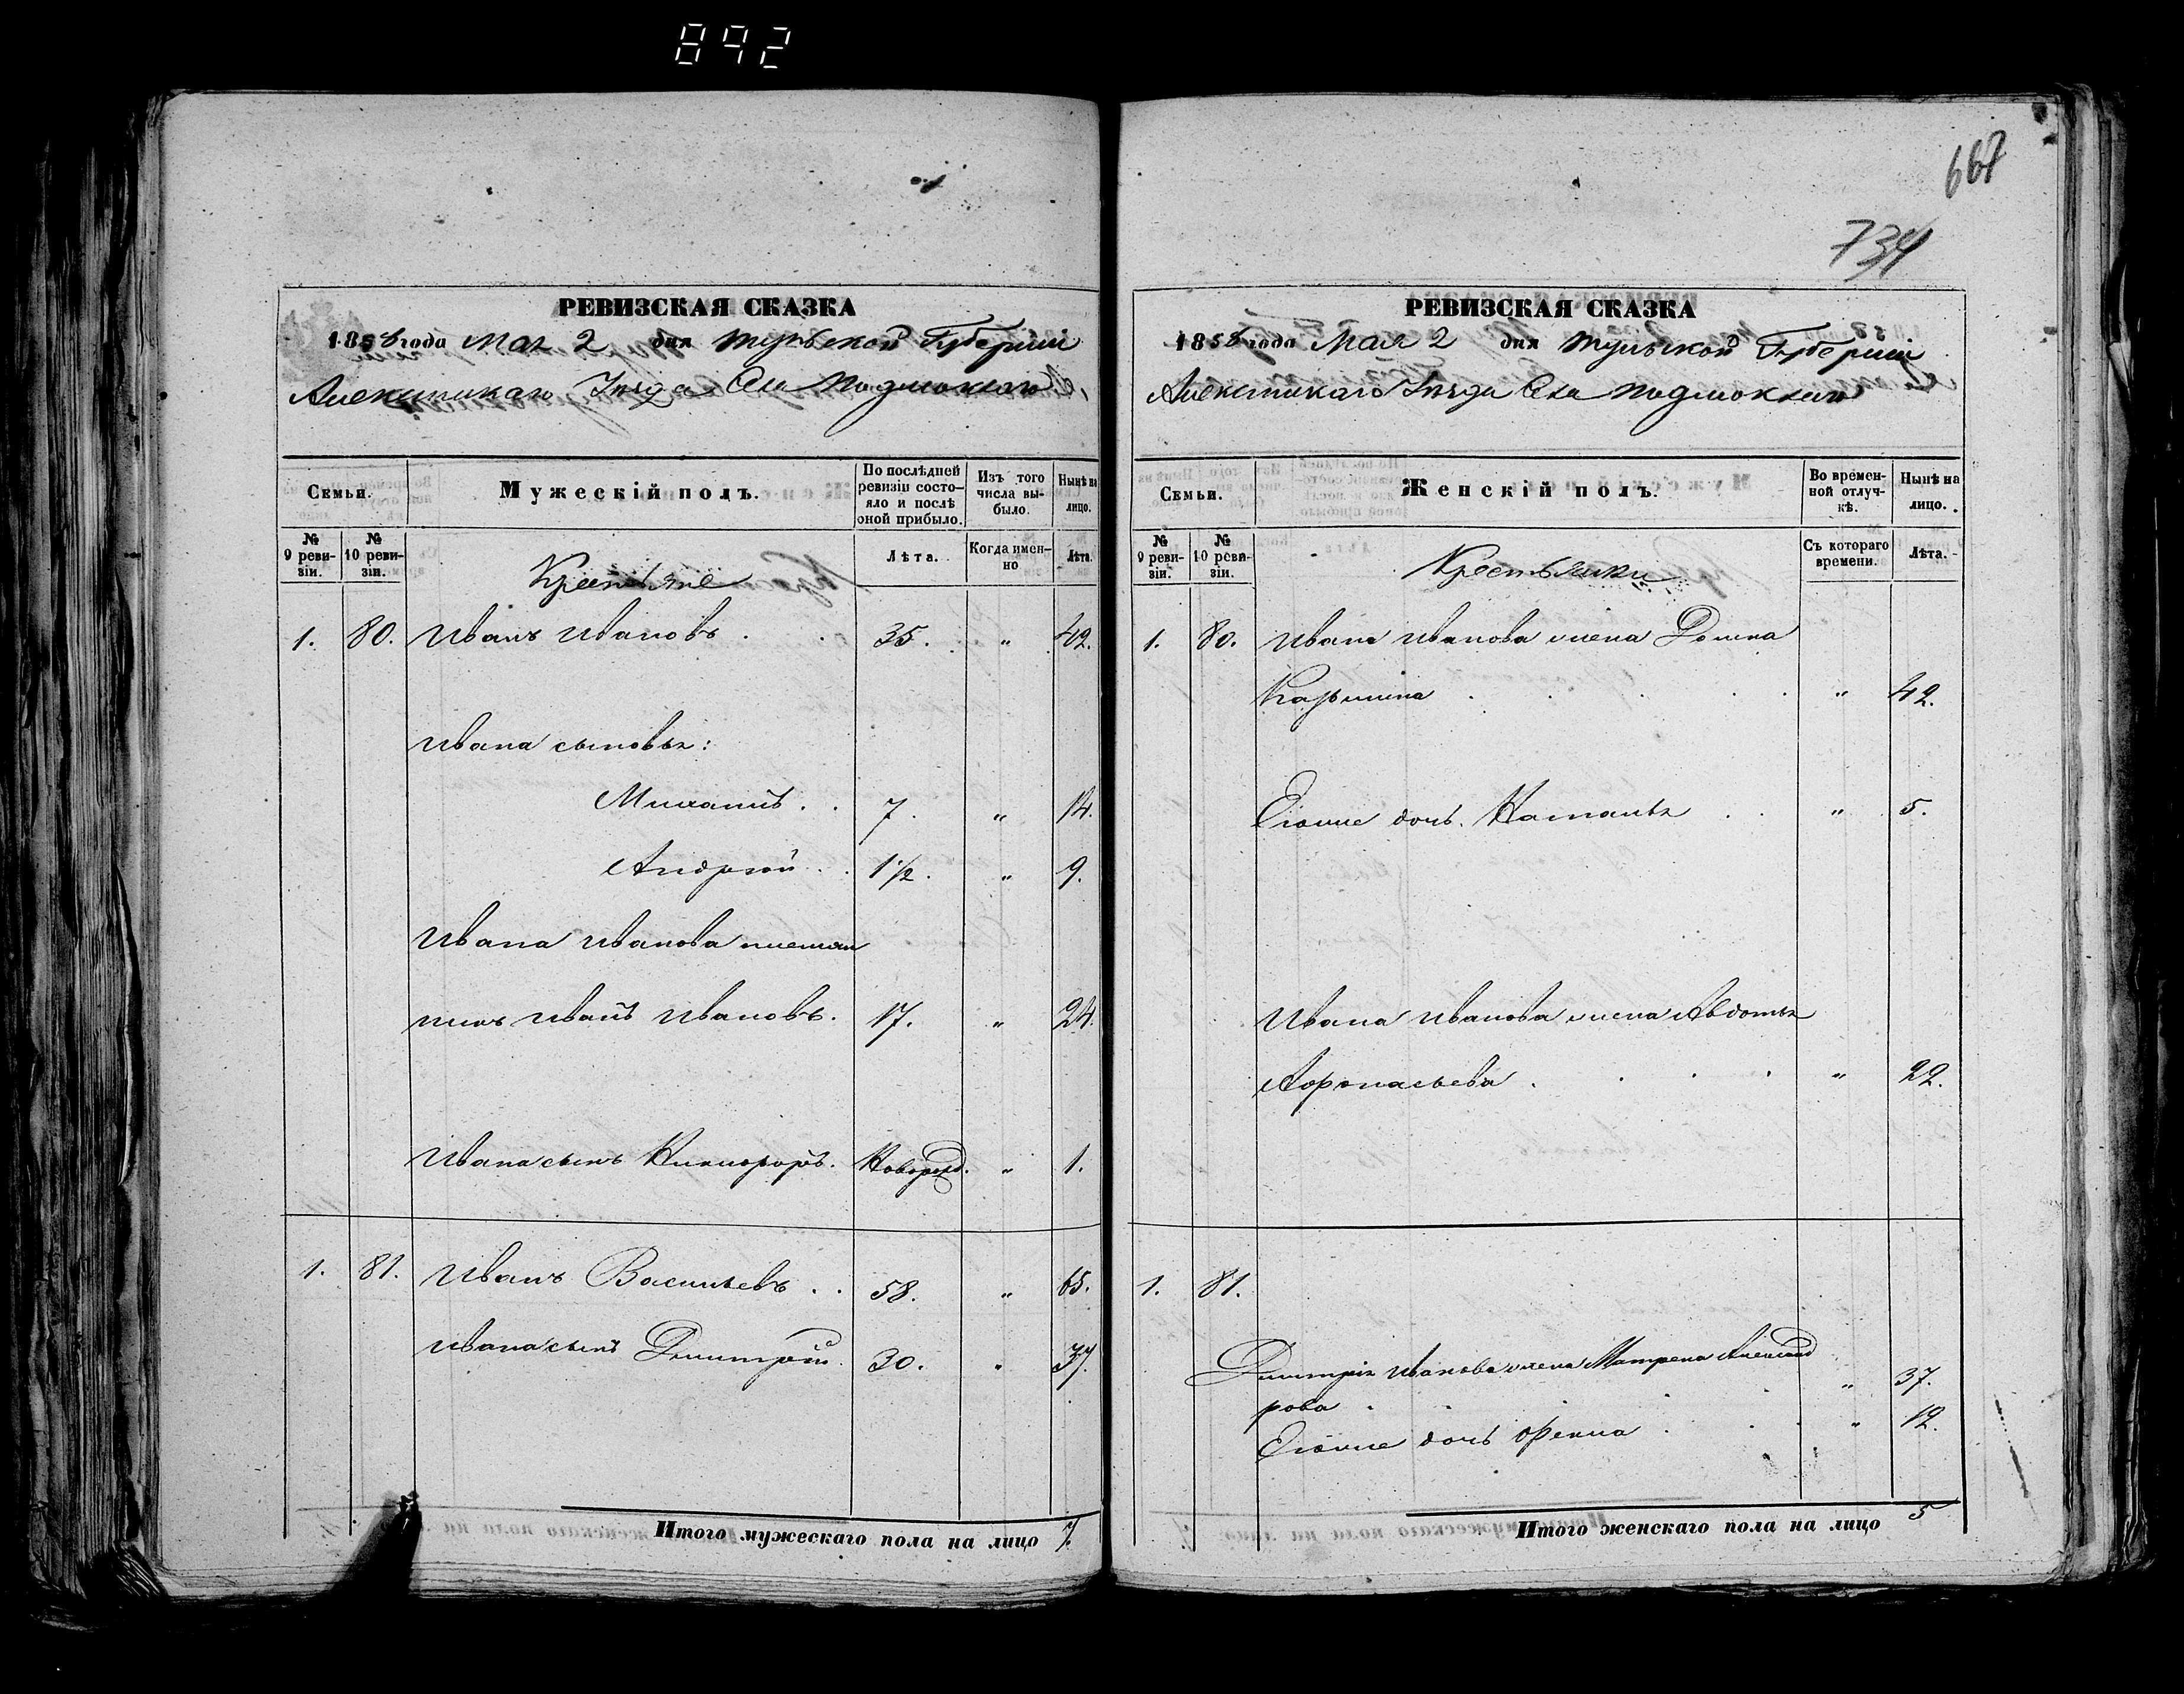 892
РЕВИЗСКАЯ СКАЗКА
1858 года Мая 2 дня Тульской Губерніи
Алексинскаго Уѣзда Села Подмоклаго
Семьи.
Мужескій полъ.
По послѣдней ревизіи состо-
яло и послѣ
оной прибыло.
Изъ того
числа вы-
было.
Нынѣ на
лицо.
№
9 реви-
зіи.
№
10 реви-
зіи.
Крестьяне
Лѣта.
Когда имен-
но
Лѣта.
1. 80. Иванъ Ивановъ . . 35. " 42.
Ивана сыновья:
Михаилъ . . 7. " 14.
Андрей . . 1 1/2. " 9.
Ивана Иванова племян
никъ Иванъ Ивановъ. 17. " 24.
Ивана сынъ Никифоръ. Новорожд. " 1.
1. 81. Иванъ Васильевъ . . 58. " 65.
Ивана сынъ Дмитрій. 30. " 37.
Итого мужескаго пола на лицо 7.
667
734
РЕВИЗСКАЯ СКАЗКА
1858 года Мая 2 дня Тульской Губерніи
Алексинскаго Уѣзда Села Подмоклаго
Семьи.
Женскій полъ.
Во времен-
ной отлуч-
кѣ.
Нынѣ на
лицо.
№
9 реви-
зіи.
№
10 реви-
зіи.
Крестьянки
Съ котораго
времени.
Лѣта.
1. 80. Ивана Иванова жена Домна
Казьмина . . . . . " 42.
Егоже дочь Наталья . . " 5.
Ивана Иванова жена Авдотья
Афонасьева . . . . " 22.
1. 81.
Дмитрія Иванова жена Матрена Александ
рова . . . . " 37.
Егоже дочь Фекла . . . " 12.
Итого женскаго пола на лицо 5